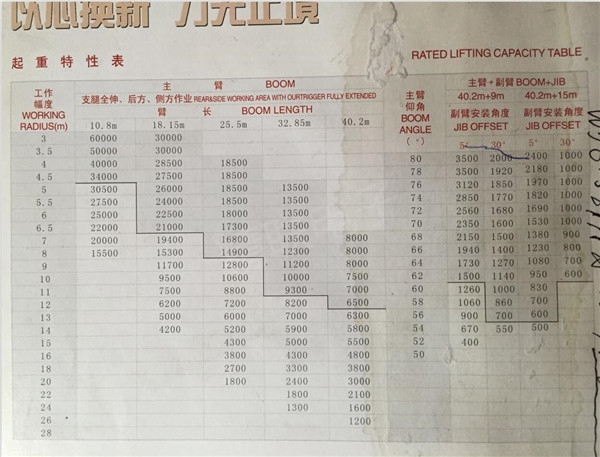 以心换新
起重特性表 RATED LIFTING CAPACITY TABLE
工作幅度 WORKING RADIUS(m) 主臂 BOOM 主臂仰角 BOOM ANGLE (°) 主臂+副臂 BOOM+JIB
支腿全伸、后方、侧方作业 REAR&SIDE WORKING AREA WITH OURTRIGGER FULLY EXTENDED 40.2m+9m 40.2m+15m
臂长 BOOM LENGTH 副臂安装角度 JIB OFFSET 副臂安装角度 JIB OFFSET
10.8m 18.15m 25.5m 32.85m 40.2m 5° 30° 5° 30°
3 60000 30000
3.5 50000 30000
4 40000 28500 18500 80 3500 2000 2400 1000
4.5 34000 27500 18500 78 3500 1920 2180 1000
5 30500 26000 18500 13500 76 3120 1850 1970 1000
5.5 27500 24000 18500 13500 74 2850 1770 1820 1000
6 25000 22500 18000 13500 72 2560 1680 1690 1000
6.5 22000 21000 17300 13500 70 2350 1600 1530 1000
7 20000 19400 16800 13500 8000 68 2150 1500 1380 900
8 15500 15300 14900 12300 8000 66 1940 1400 1230 800
9 11700 12800 11200 8000 64 1730 1270 1080 700
10 9500 10600 10000 7500 62 1500 1140 950 600
11 7500 8800 9300 7000 60 1260 1000 830
12 6200 7200 8200 6500 58 1060 860 700
13 5000 6000 7000 6300 56 900 700 600
14 4200 5200 5900 5800 54 670 550 500
15 4300 5000 5500 52 400
16 3800 4300 4800 50
18 2700 3300 3800
20 1800 2400 3000
22 1800 2100
24 1300 1600
26 1200
28